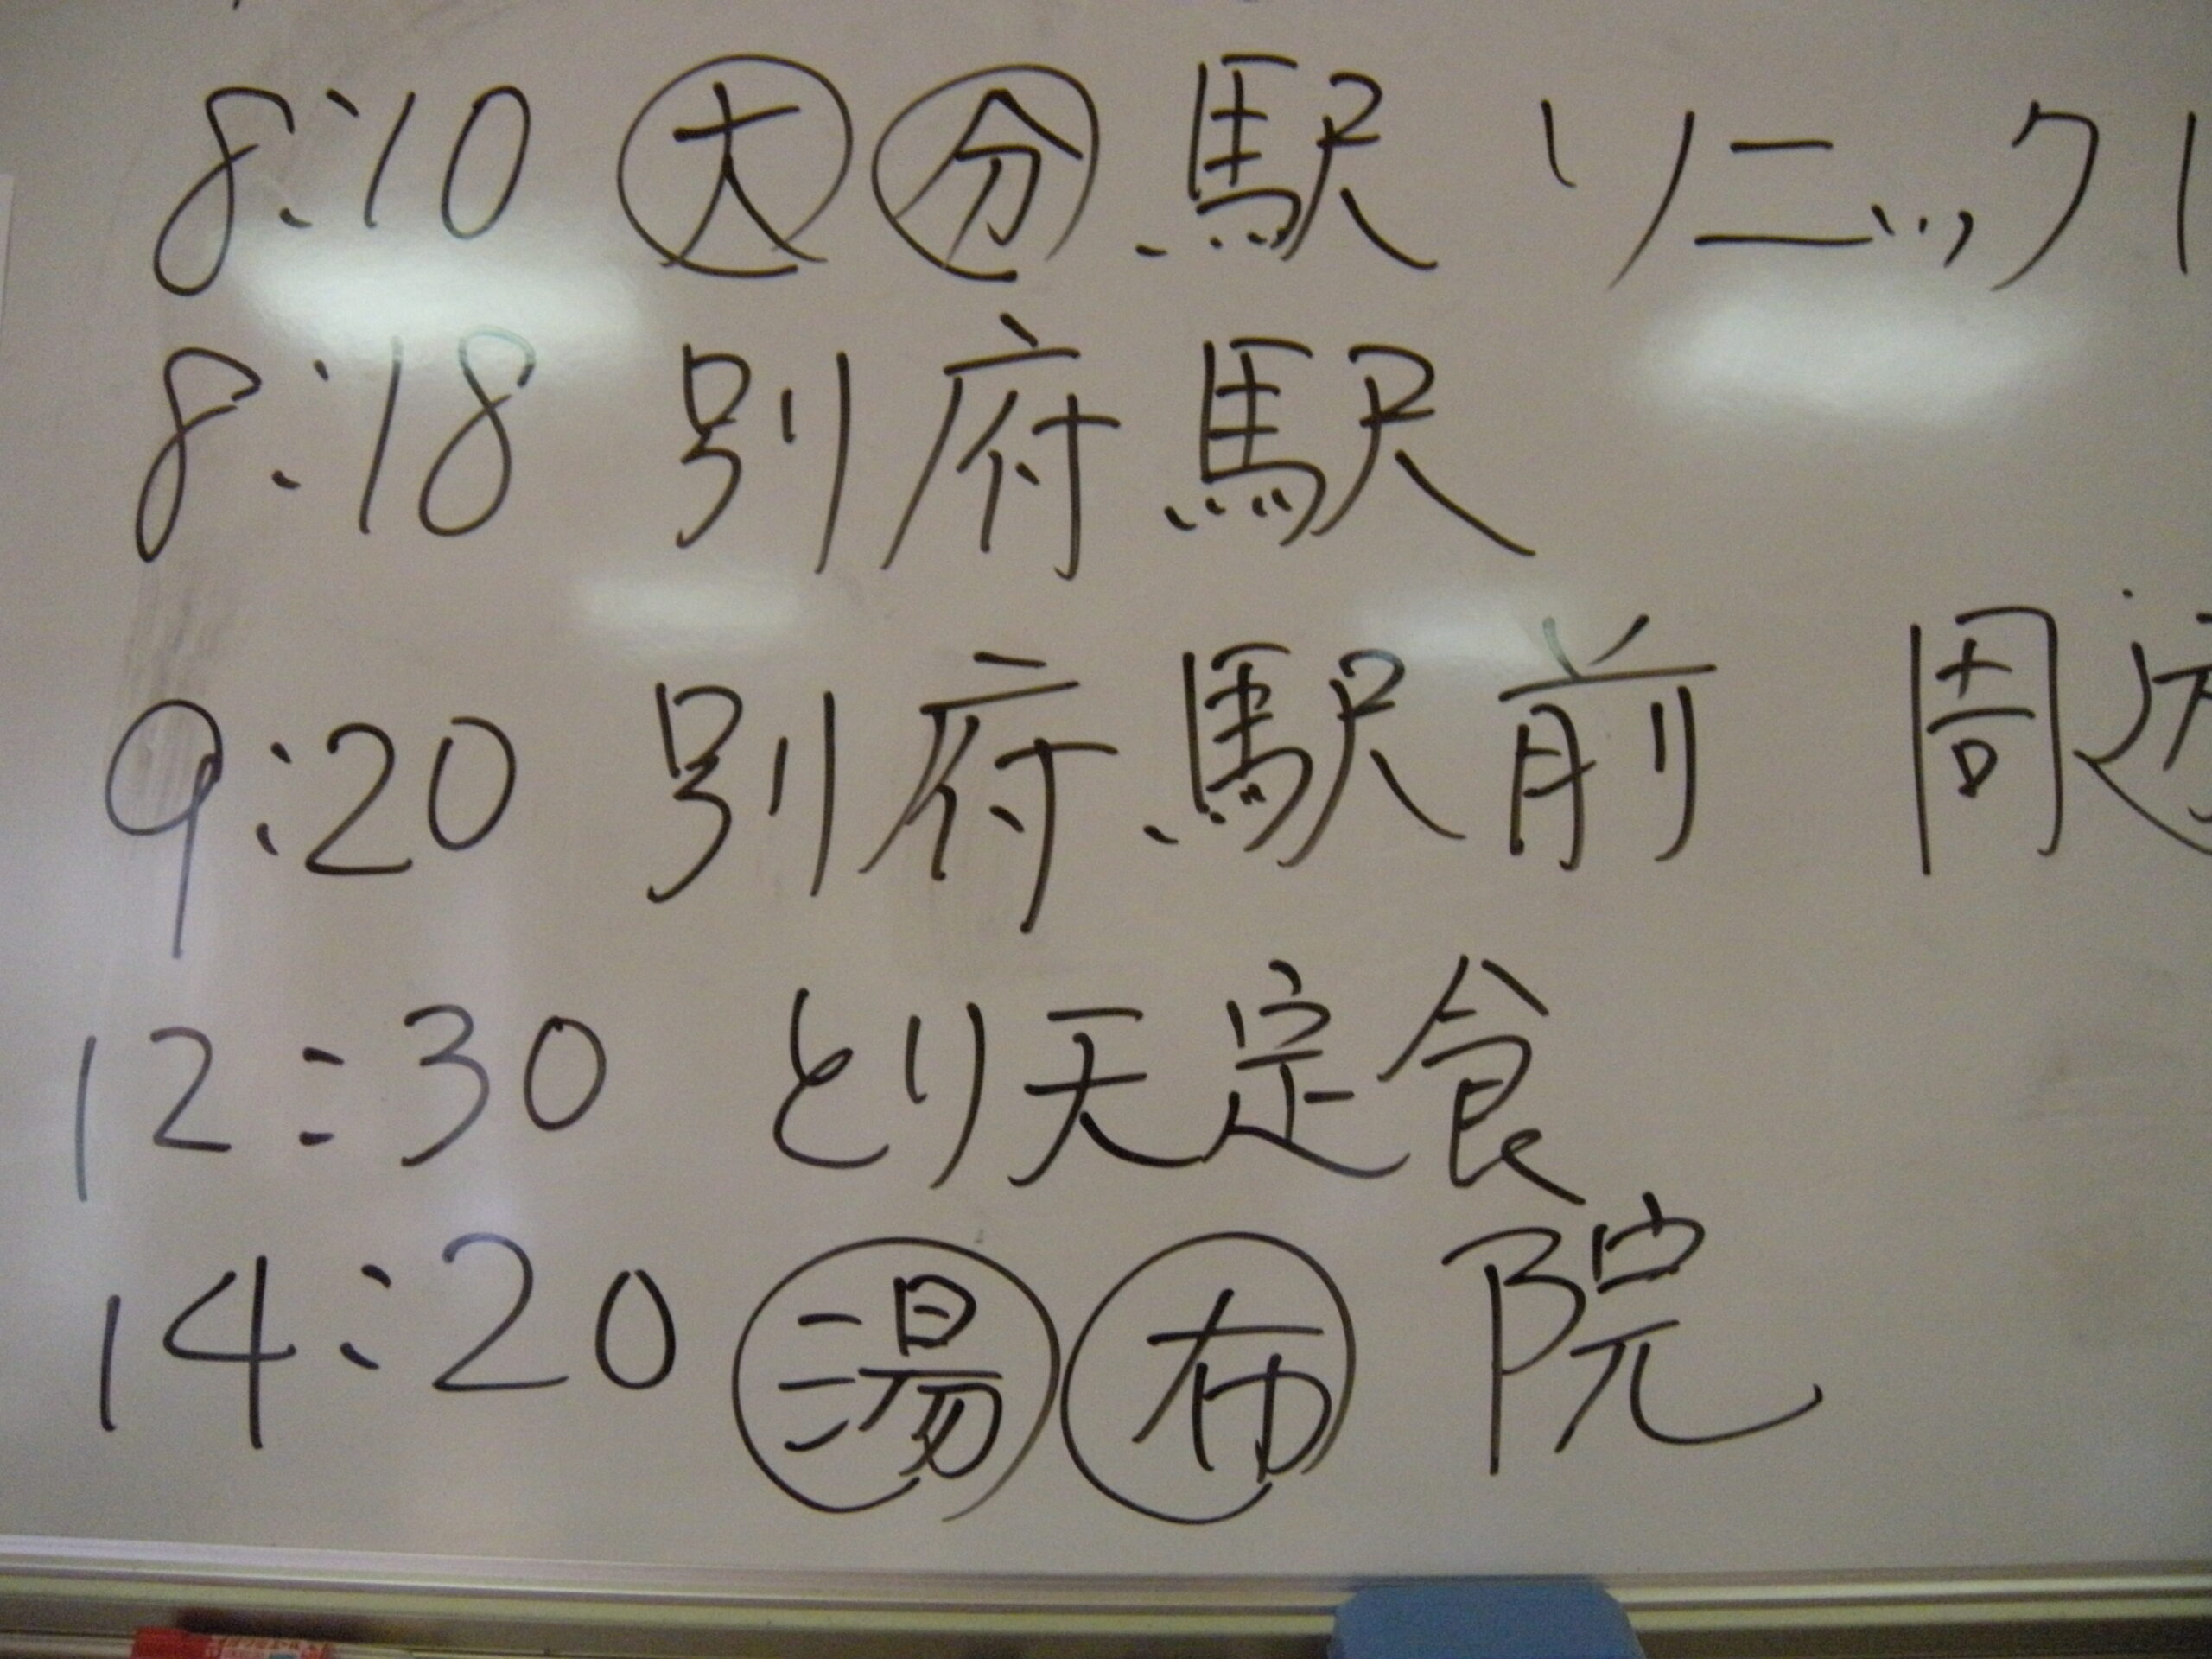 8:10 大分駅 ソニック1
8:18 別府駅
9:20 別府駅前 周辺
12:30 とり天定食
14:20 湯布院